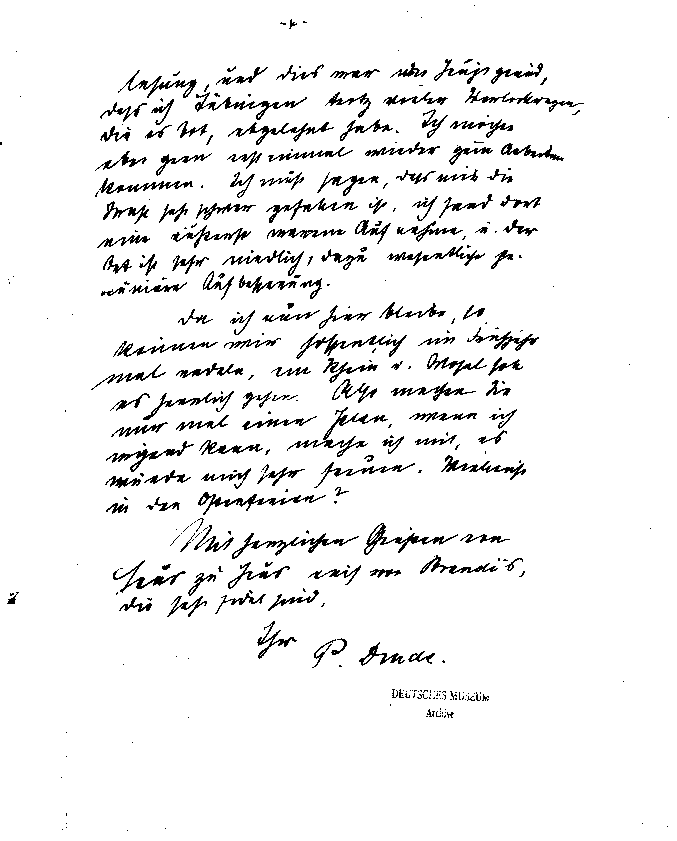 -4-
lesung, und dies war ein Hauptgrund,
dass ich Tübingen trotz vieler Verlockungen,
die es bot, abgelehnt habe. Ich möchte
aber gern erst einmal wieder zum Arbeiten
kommen. Ich muss sagen, dass mir die
Wahl sehr schwer gefallen ist, ich fand dort
eine äusserst warme Aufnahme, u. der
Ort ist sehr niedlich, dazu wesentliche pe-
cuniäre Aufbesserung.
Da ich nun hier bleibe, so
können wir hoffentlich im Frühjahr
mal radeln, am Rhein u. Mosel soll
es herrlich gehen. Also machen Sie
nur mal einen Plan, wenn ich
irgend kann, mache ich mit, es
würde mich sehr freuen. Vielleicht
in den Osterferien?
Mit herzlichen Grüssen von
Haus zu Haus auch von Brandis,
die sehr fidel sind,
Ihr
P. Drude.
DEUTSCHES MUSEUM
Archive